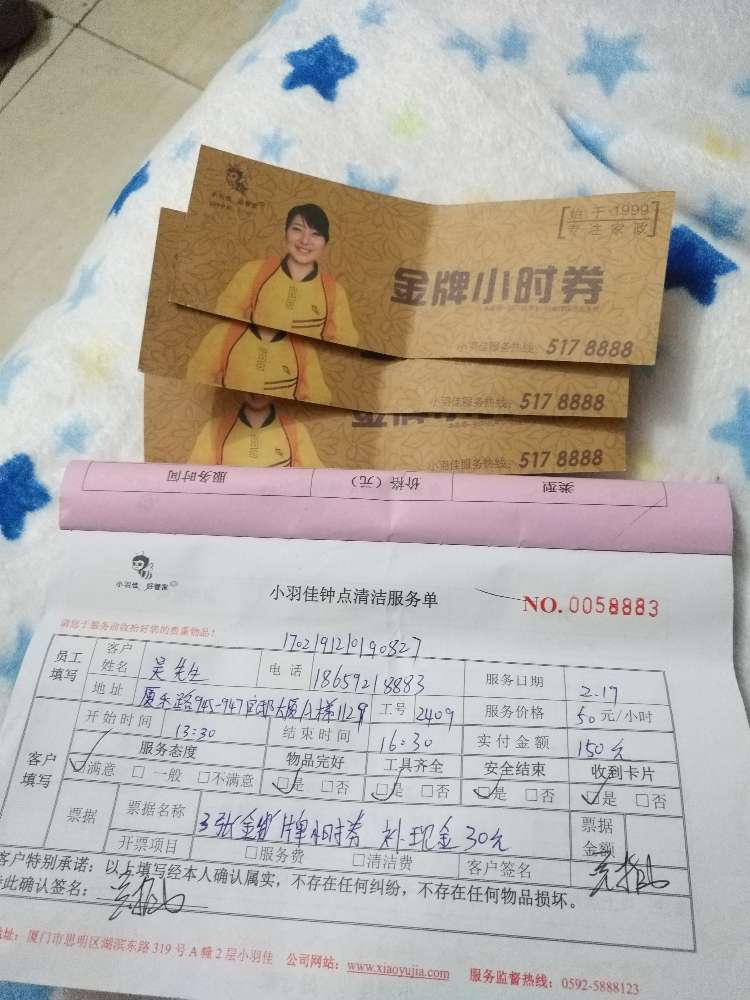 小羽佳 好管家
始于1999
专注家政
金牌小时券
小羽佳服务热线: 517 8888
小羽佳服务热线: 517 8888
小羽佳服务热线: 517 8888
类型 价格（元） 服务时间
小羽佳 好管家
小羽佳钟点清洁服务单 NO. 0058883
请您于服务前收拾好您的贵重物品！
170219120190827
员工填写 客户姓名 吴先生 电话 18659218883 服务日期 2.17
地址 厦禾路945-947官邸大厦A梯1129 工号 2409 服务价格 50元/小时
开始时间 13:30 结束时间 16:30 实付金额 150元
客户填写 服务态度 物品完好 工具齐全 安全结束 收到卡片
☑满意 □一般 □不满意 ☑是 □否 ☑是 □否 ☑是 □否 ☑是 □否
票据 票据名称 3张(金)牌小时券 补现金30元 票据金额
开票项目 □服务费 □清洁费 客户签名
客户特别承诺：以上填写经本人确认属实，不存在任何纠纷，不存在任何物品损坏。
此确认签名：
址：厦门市思明区湖滨东路319号A幢2层小羽佳 公司网站：www.xiaoyujia.com 服务监督热线：0592-5888123